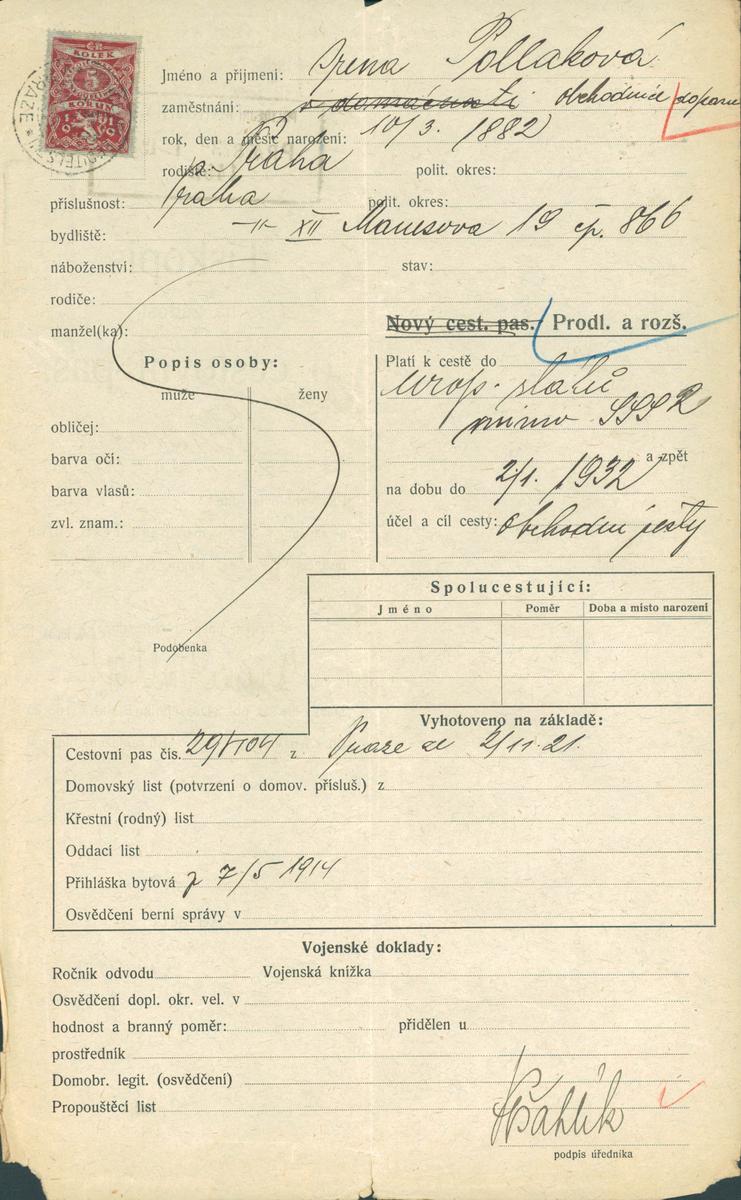 ČR
KOLEK
5
KORUN
1919
PRAZE
Jméno a přijmení: Irena Pollaková
zaměstnání: v domácnosti obchodnice
rok, den a měsíc narození: 10/3. 1882
rodiště: Praha polit. okres:
příslušnost: Praha polit. okres:
bydliště: -"- XII Manesova 19 čp. 866
náboženství: stav:
rodiče:
manžel(ka):
Nový cest. pas. Prodl. a rozš.
Popis osoby:
muže ženy
obličej:
barva očí:
barva vlasů:
zvl. znam.:
Podobenka
Platí k cestě do
evrop. států
mimo SSSR
a zpět
na dobu do 2/1. 1932
účel a cíl cesty: obchodní cesty
Spolucestující:
Jméno Poměr Doba a místo narození
Vyhotoveno na základě:
Cestovní pas čís. z Praze 2/11.21.
Domovský list (potvrzení o domov. přísluš.) z
Křestní (rodný) list
Oddací list
Přihláška bytová z 7/5 1914
Osvědčení berní správy v
Vojenské doklady:
Ročník odvodu Vojenská knížka
Osvědčení dopl. okr. vel. v
hodnost a branný poměr: přidělen u
prostředník
Domobr. legit. (osvědčení)
Propouštěcí list
podpis úředníka